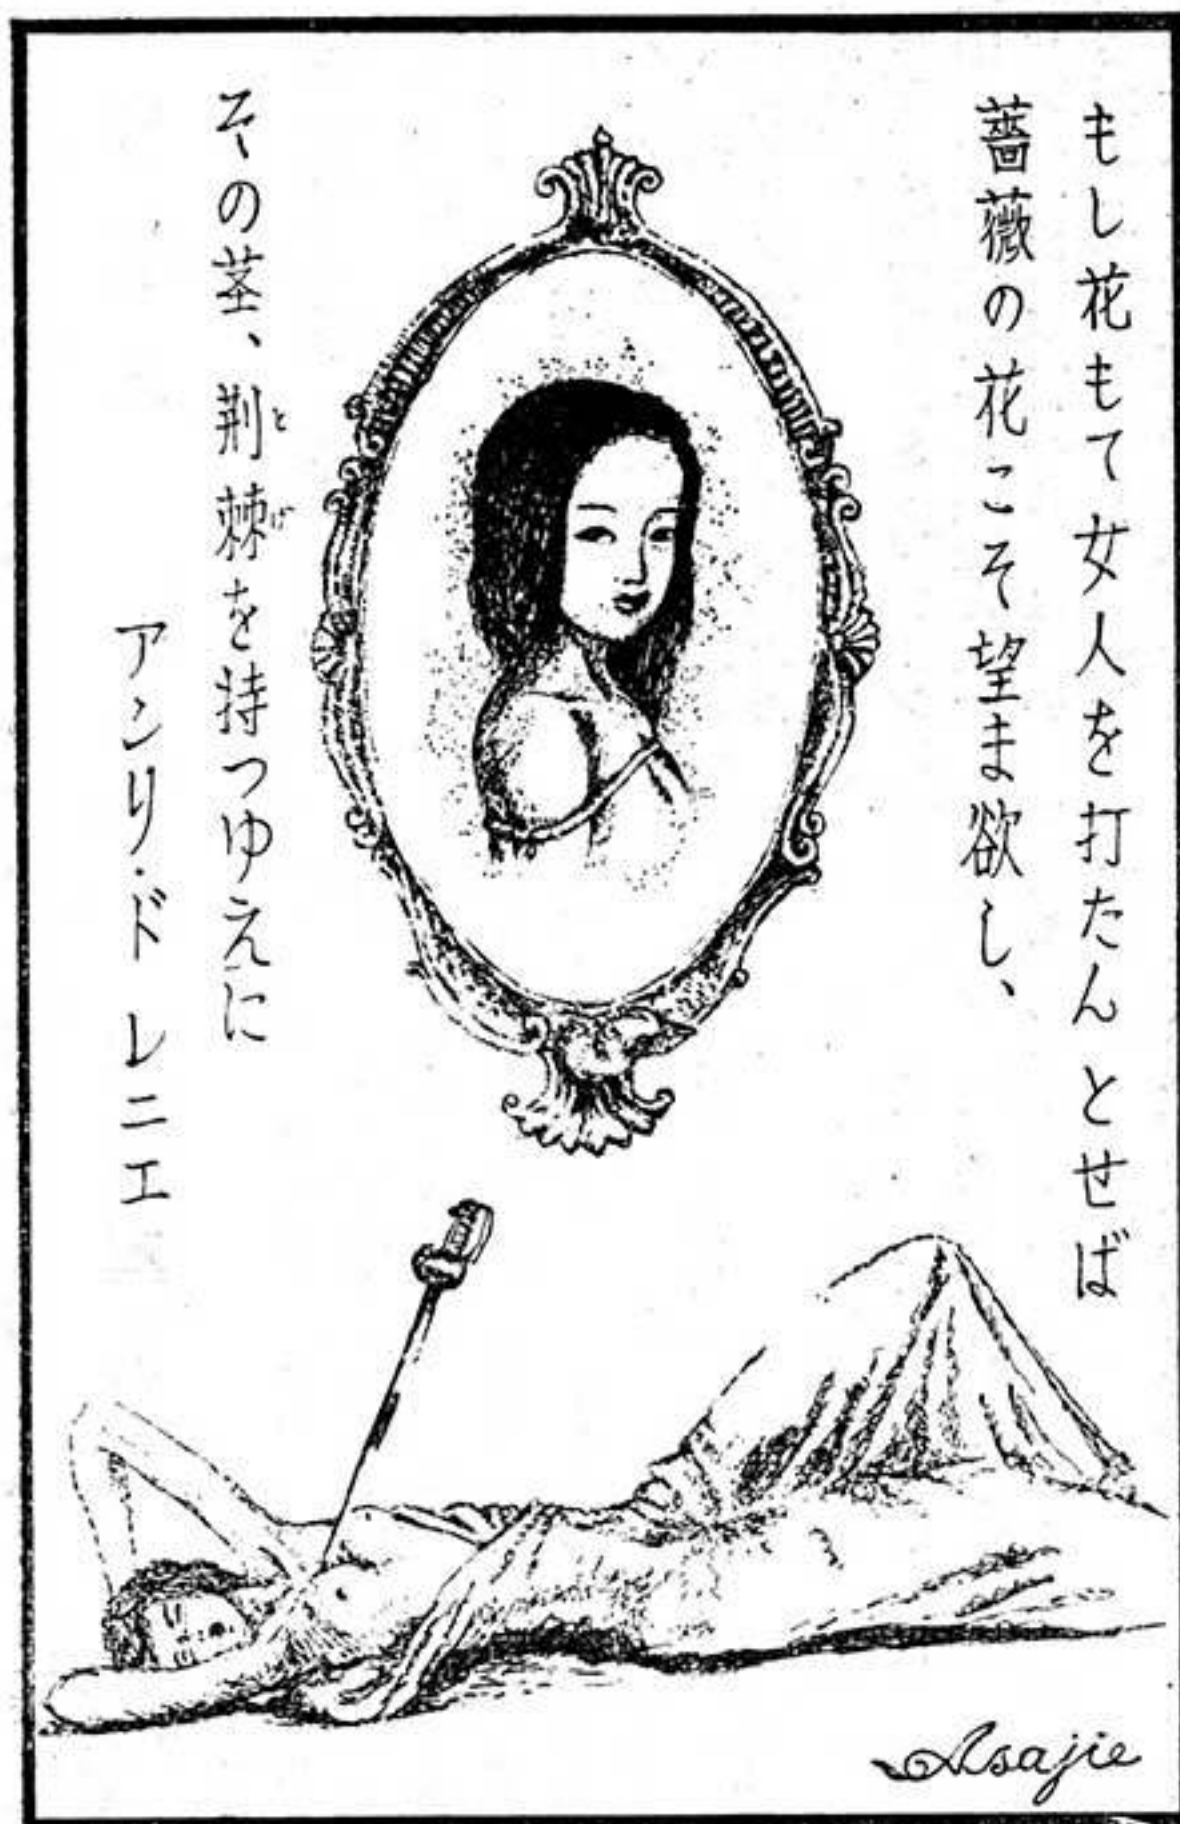 もし花もて女人を打たんとせば
薔薇の花こそ望ま欲し、
その茎、荆棘を持つゆえに
とげ
アンリ・ド レニエ
Asajie